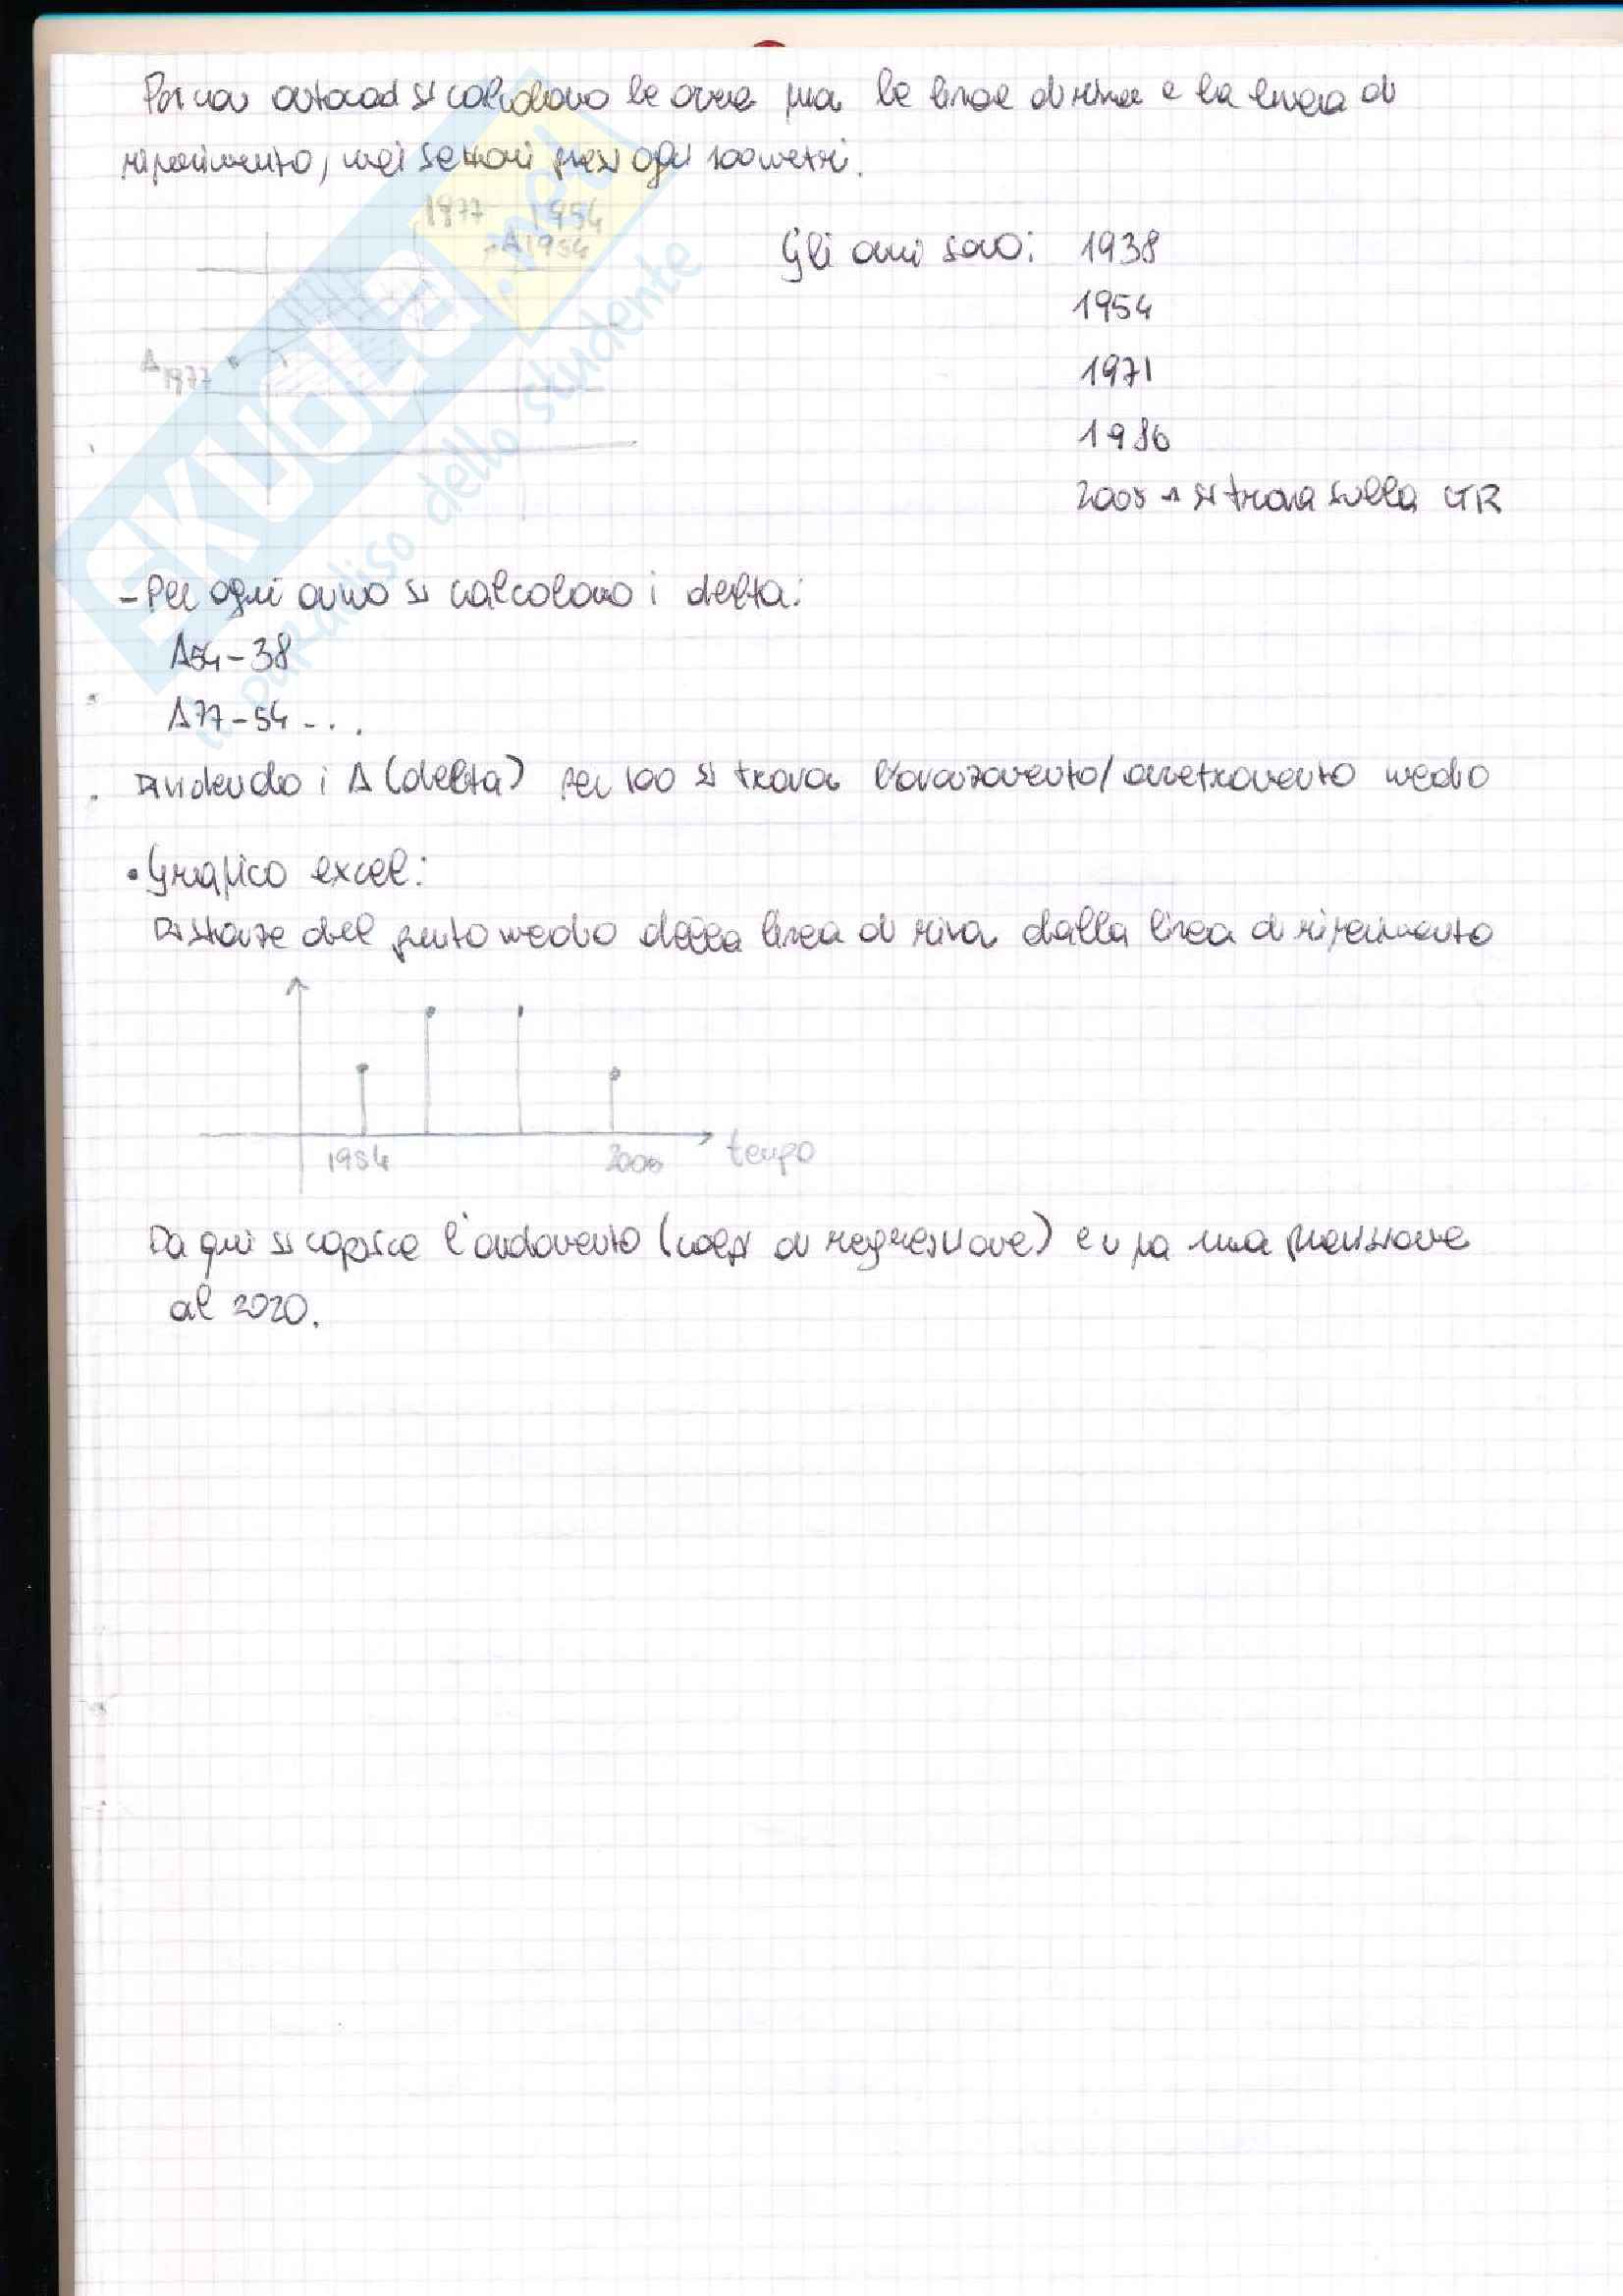 Poi con autocad si calcolano le aree fra le linee di riva e la linea di
riferimento, nei settori presi ogni 100 metri.
1977 1954
A1954
A1977
Gli anni sono: 1938
1954
1971
1986
2005 → si trova sulla CTR
- Per ogni anno si calcolano i delta:
Δ54-38
Δ77-54 - ...
Dividendo i Δ (delta) per 100 si trova l'avanzamento/arretramento medio
• Grafico excel:
Distanze del punto medio della linea di riva dalla linea di riferimento
1954
2005
tempo
Da qui si capisce l'andamento (coeff di regressione) e si fa una previsione
al 2020.
SKUOLA.net
il paradiso dello studente